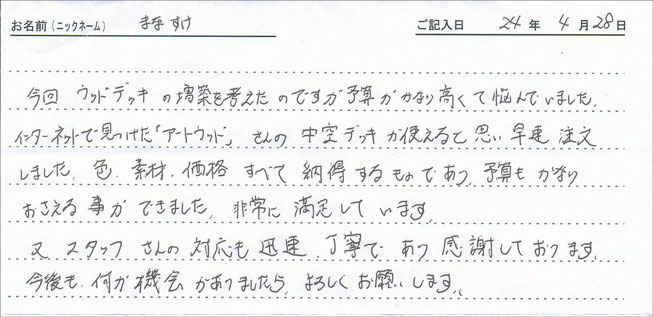 お名前(ニックネーム) まな すけ ご記入日 24年 4月28日
今回 ウッドデッキの増築を考えたのですが予算がかなり高くて悩んでいました。
インターネットで見つけた「アートウッド」さんの中空デッキが使えると思い早速注文
しました。色、素材、価格すべて納得するものであり、予算もかなり
おさえる事ができました。非常に満足しています。
又 スタッフさんの対応も迅速、丁寧であり感謝しております。
今後も何か機会がありましたら、よろしくお願いします。